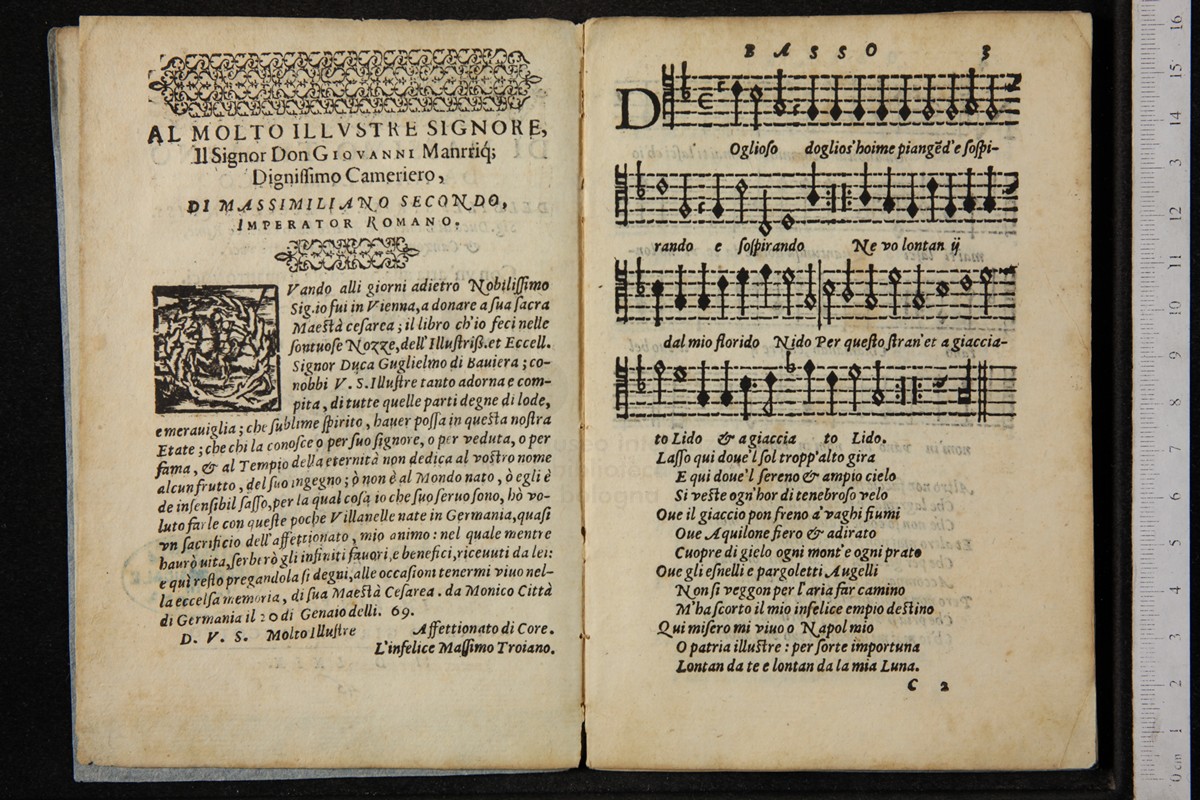 AL MOLTO ILLVSTRE SIGNORE,
Il Signor Don GIOVANNI Manrriq;
Dignissimo Cameriero,
DI MASSIMILIANO SECONDO,
IMPERATOR ROMANO.
QVando alli giorni adietro Nobilissimo
Sig.io fui in Vienna,a donare a sua sacra
Maestà cesarea; il libro ch'io feci nelle
sontuose Nozze,dell'Illustriß.et Eccell.
Signor Duca Guglielmo di Bauiera; co-
nobbi V. S.Illustre tanto adorna e com-
pita, di tutte quelle parti degne di lode,
e merauiglia; che sublime spirito, hauer possa in questa nostra
Etate; che chi la conosce o per suo signore, o per veduta, o per
fama, & al Tempio della eternità non dedica al vostro nome
alcun frutto, del suo ingegno; ò non è al Mondo nato, ò egli è
de insensibil sasso,per la qual cosa io che suo seruo sono, hò vo-
luto farle con queste poche Villanelle nate in Germania,quasi
vn sacrificio dell'affettionato, mio animo: nel quale mentre
haurò uita,serberò gli infiniti fauori,e benefici,riceuuti da lei:
e quì resto pregandola si degni,alle occasioni tenermi viuo nel-
la eccelsa memoria, di sua Maestà Cesarea. da Monico Città
di Germania il 20 di Genaio delli. 69.
D. V. S. Molto Illustre Affettionato di Core.
L'infelice Massimo Troiano.
BASSO 3
DOglioso doglios'hoime piangēd'e sospi-
rando e sospirando Ne vo lontan ij
dal mio florido Nido Per questo stran'et a giaccia-
to Lido & agiaccia to Lido.
Lasso qui doue'l sol tropp'alto gira
E qui doue'l sereno & ampio cielo
Si veste ogn'hor di tenebroso velo
Oue il giaccio pon freno a' vaghi fiumi
Oue Aquilone fiero & adirato
Cuopre di gielo ogni mont'e ogni prato
Oue gli esnelli e pargoletti Augelli
Non si veggon per l'aria far camino
M'ha scorto il mio infelice empio destino
Qui misero mi viuo o Napol mio
O patria illustre : per sorte importuna
Lontan da te e lontan da la mia Luna.
C 2